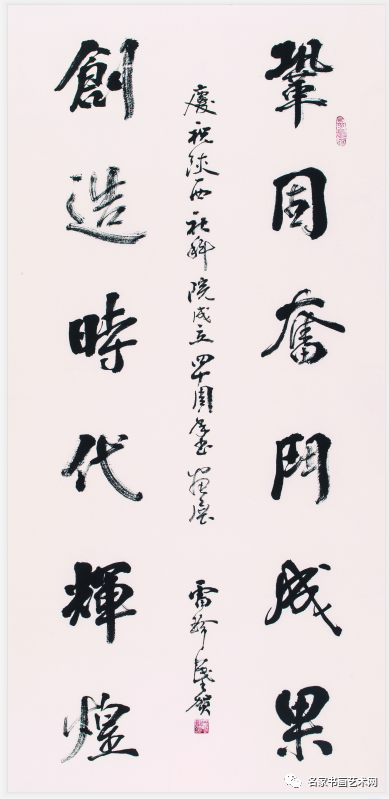 鞏固奮鬥成果
慶祝陝西社科院成立四十周年書畫展
雷珍民賀
創造時代輝煌
名家书画艺术网